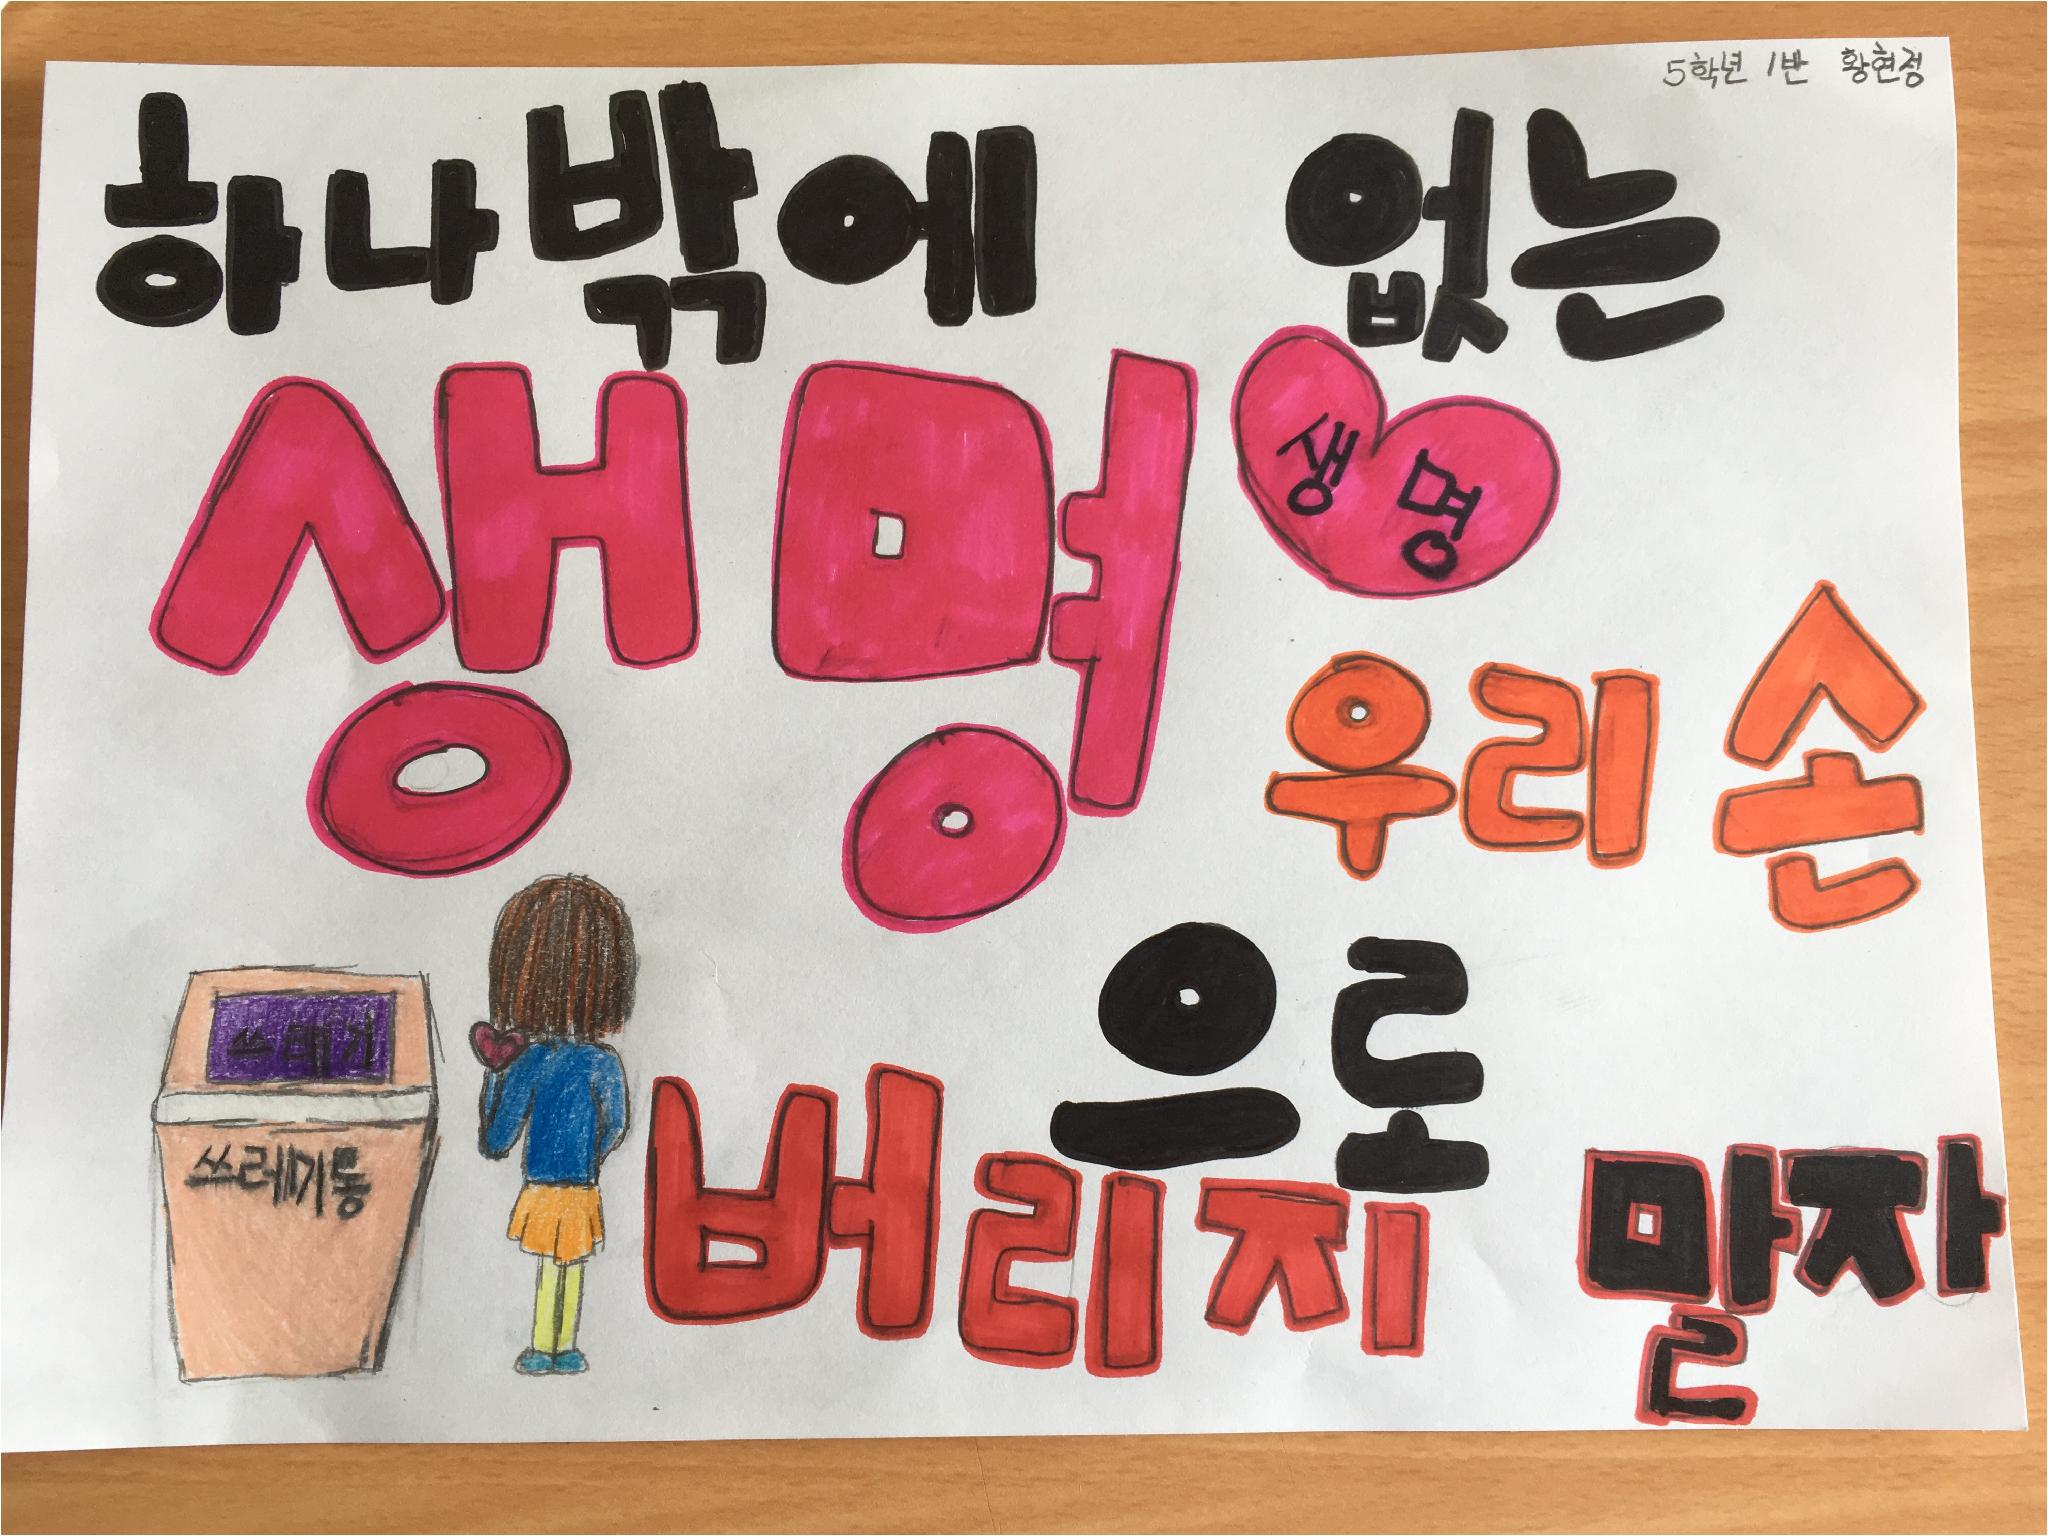 5학년 1반 황현정
하나밖에 없는
생명
생명
우리 손
으로
버리지 말자
쓰레기
쓰레기통